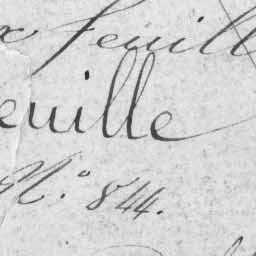 x feuill
euille
N.° 844.